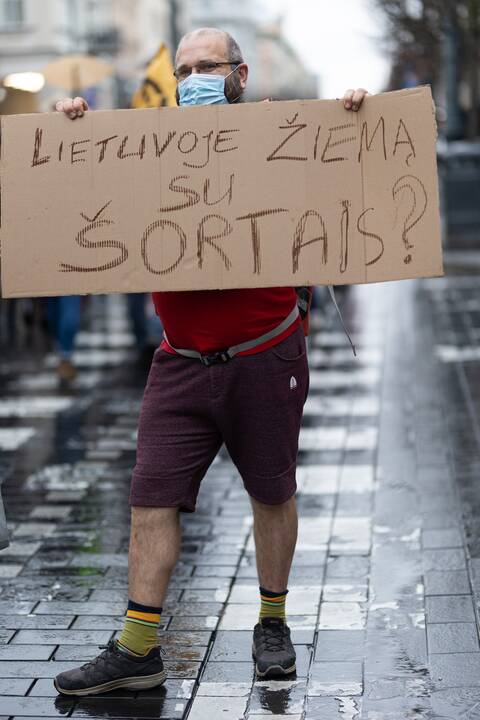 LIETUVOJE ŽIEMĄ
SU
ŠORTAIS?